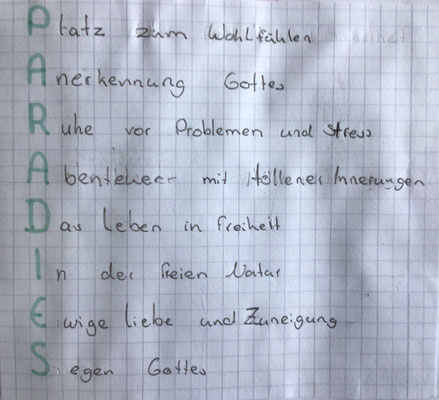 Platz zum Wohlfühlen
Anerkennung Gottes
Ruhe vor Problemen und Stress
Abenteuer mit tollen Erinnerungen
Das Leben in Freiheit
In der freien Natur
Ewige liebe und Zuneigung
Segen Gottes